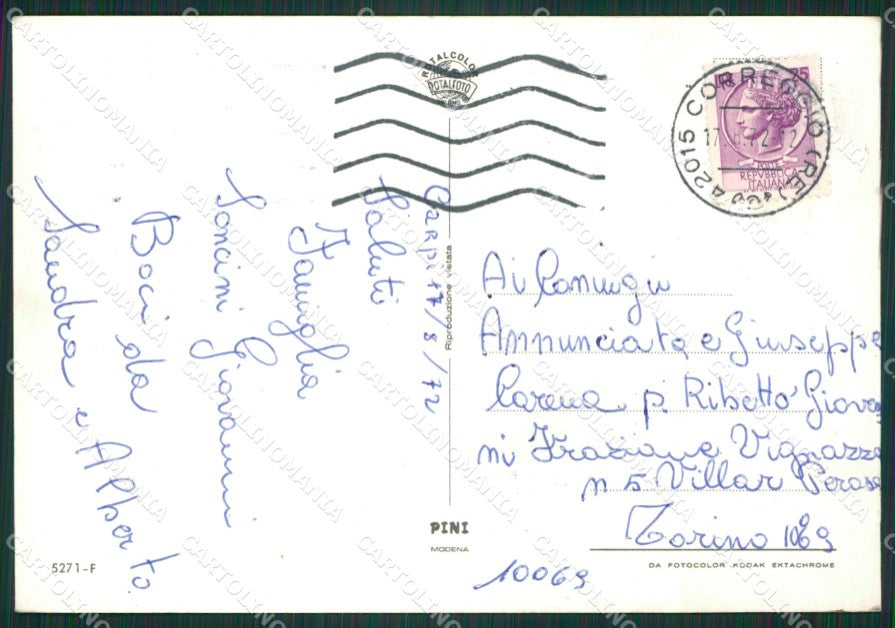 Carpi 17/8/72
Saluti
Famiglia
Soncini Giovanni
Baci da
Sandra e Alberto.
ROTALCOLOR
ROTALFOTO
MILANO
Riproduzione vietata
PINI
MODENA
5271-F
42015 CORREGGIO (RE)
25
POSTE
REPVBBLICA
ITALIANA
Ai Coniugi
Annunciata e Giuseppe
Carena p. Ribotto Giovan
ni Frazione Vignazze
n 5 Villar Perosa
Torino 10069
10069
DA FOTOCOLOR KODAK EKTACHROME
CARTOLINOMANIA